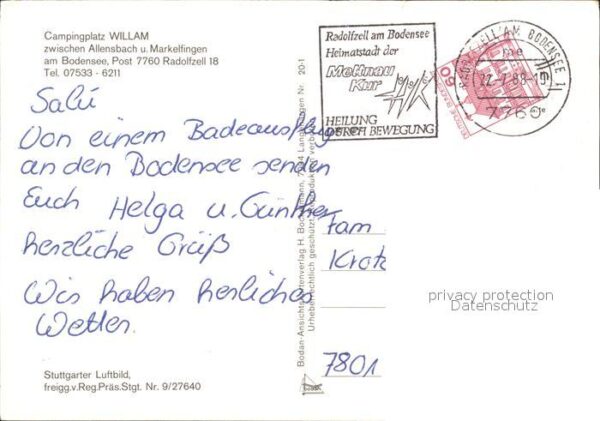 Campingplatz WILLAM
zwischen Allensbach u. Markelfingen
am Bodensee, Post 7760 Radolfzell 18
Tel. 07533 - 6211
Salü
Von einem Badeausflug
an den Bodensee senden
Euch Helga u. Günther
herzliche Grüß
Wir haben herliches
Wetter.
Stuttgarter Luftbild,
freigg.v.Reg.Präs.Stgt. Nr. 9/27640
Bodan-Ansichtskartenverlag H. Bockelmann, Langenargen Nr. 20-1
Urheberrechtlich geschützt
Radolfzell am Bodensee
Heimatstadt der
Mettnau
Kur
HEILUNG
DURCH BEWEGUNG
RADOLFZELL AM BODENSEE 1
me
22.-7.88-19
7760
60
Fam
Krotz
7801
privacy protection
Datenschutz